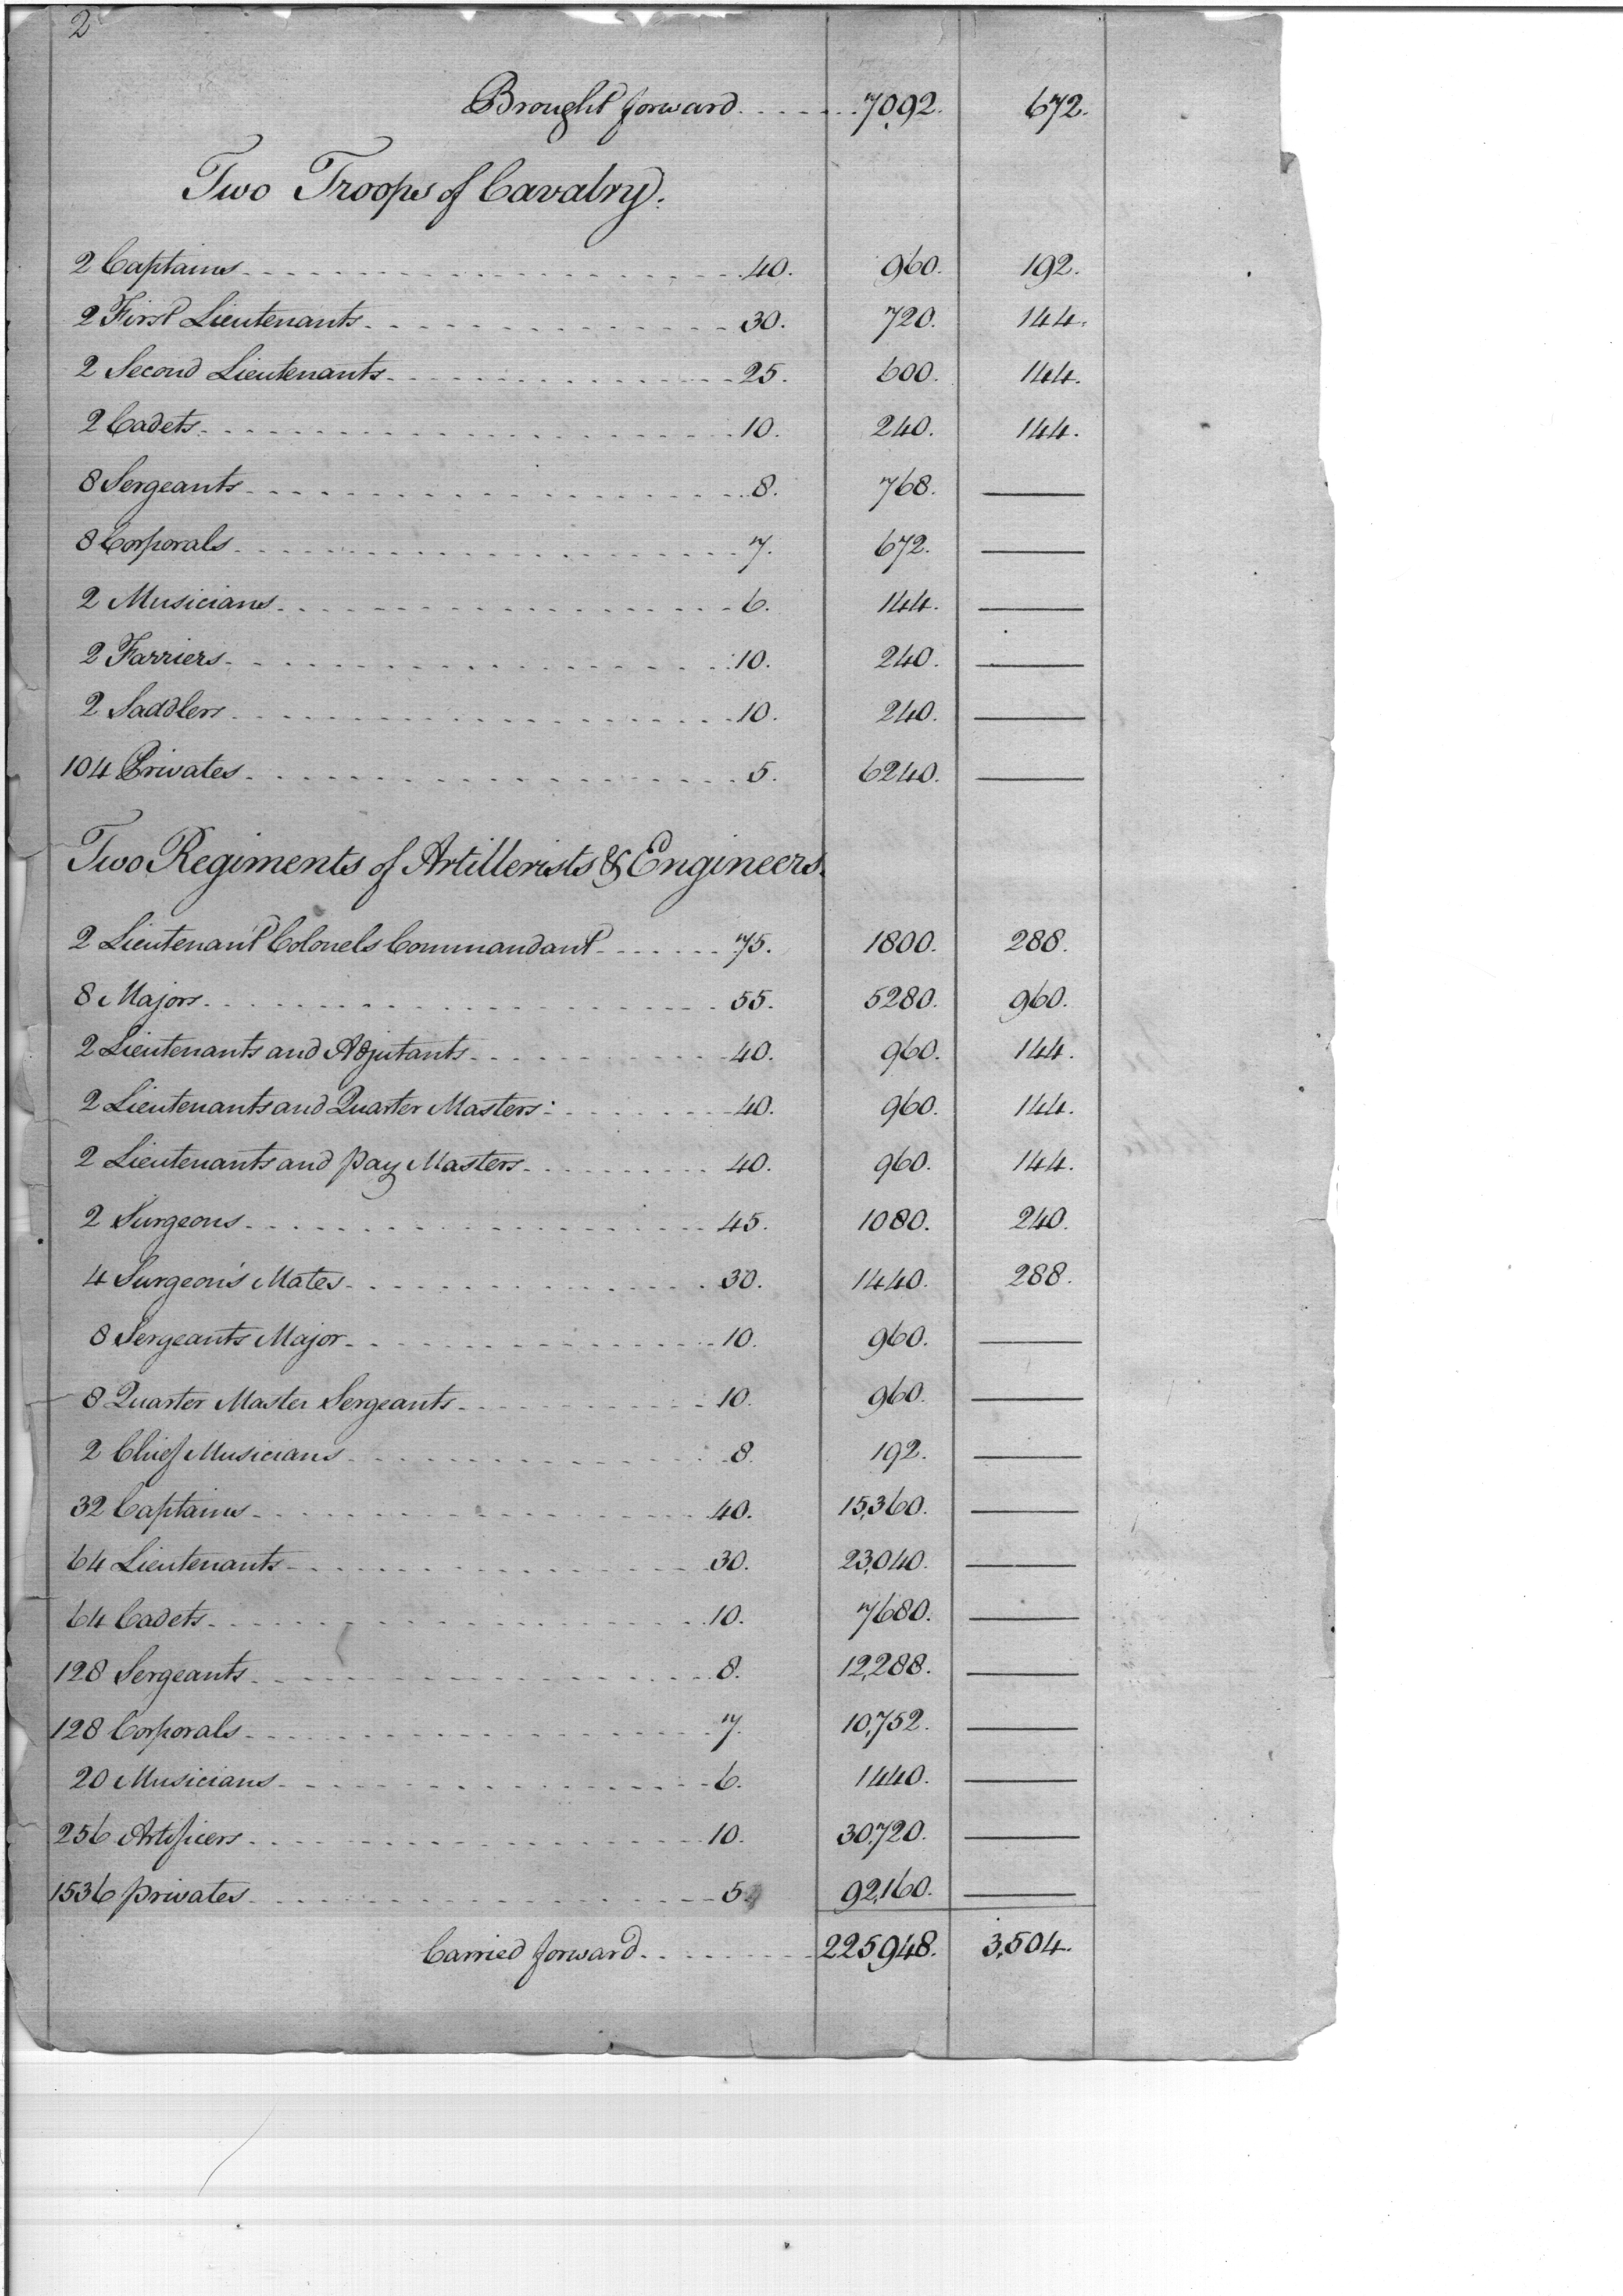 2
Brought forward 7092. 672.
Two Troops of Cavalry.
2 Captains 40. 960. 192.
2 First Lieutenants 30. 720. 144.
2 Second Lieutenants 25. 600. 144.
2 Cadets 10. 240. 144.
8 Sergeants 8. 768. —
8 Corporals 7. 672. —
2 Musicians 6. 144. —
2 Farriers 10. 240. —
2 Saddlers 10. 240. —
104 Privates 5. 6240. —
Two Regiments of Artillerists & Engineers.
2 Lieutenant Colonels Commandant 75. 1800. 288.
8 Majors 55. 5280. 960.
2 Lieutenants and Adjutants 40. 960. 144.
2 Lieutenants and Quarter Masters 40. 960. 144.
2 Lieutenants and pay Masters 40. 960. 144.
2 Surgeons 45. 1080. 240.
4 Surgeon's Mates 30. 1440. 288.
8 Sergeants Major 10. 960. —
8 Quarter Master Sergeants 10. 960. —
2 Chief Musicians 8. 192. —
32 Captains 40. 15,360. —
64 Lieutenants 30. 23,040. —
64 Cadets 10. 7680. —
128 Sergeants 8. 12,288. —
128 Corporals 7. 10,752. —
20 Musicians 6. 1440. —
256 Artificers 10. 30,720. —
1536 privates 5. 92,160. —
Carried forward 225,948. 3,504.